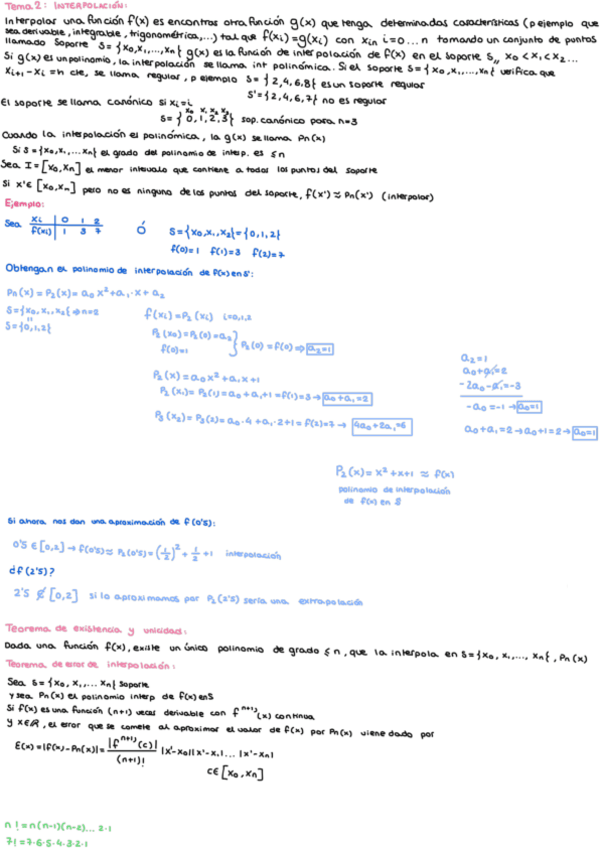 Tema 2: INTERPOLACIÓN:
Interpolar una función f(x) es encontrar otra función g(x) que tenga determinadas características (p ejemplo que
sea derivable, integrable, trigonométrica,...) tal que f(xi)=g(xi) con xi n i=0...n tomando un conjunto de puntos
llamado soporte S={x0,x1,...,xn} g(x) es la función de interpolación de f(x) en el soporte S,, x0<x1<x2...
Si g(x) es un polinomio, la interpolación se llama int polinómica. Si el soporte S={x0,x1,...,xn} verifica que
xi+1-xi=h cte, se llama regular, p ejemplo S={2,4,6,8} es un soporte regular
S'={2,4,6,7} no es regular
El soporte se llama canónico si xi=i
x0 x1 x2 x3
S={0,1,2,3} sop. canónico para n=3
Cuando la interpolación es polinómica, la g(x) se llama Pn(x)
Si S={x0,x1,...xn} el grado del polinomio de interp. es ≤n
Sea I=[x0,xn] el menor intervalo que contiene a todos los puntos del soporte
Si x'∈[x0,xn] pero no es ninguno de los puntos del soporte, f(x')≈Pn(x') (interpolar)
Ejemplo:
Sea xi | 0 1 2 Ó S={x0,x1,x2}={0,1,2}
f(xi) | 1 3 7 f(0)=1 f(1)=3 f(2)=7
Obtengan el polinomio de interpolación de f(x) en S:
Pn(x)=P2(x)=a0x²+a1·x+a2
S={x0,x1,x2}⇒n=2 f(xi)=P2(xi) i=0,1,2
S={0,1,2}
P2(x0)=P2(0)=a2
f(0)=1 } P2(0)=f(0)⇒a2=1
P2(x)=a0x²+a1x+1
P2(x1)=P2(1)=a0+a1+1=f(1)=3→a0+a1=2
P2(x2)=P2(2)=a0·4+a1·2+1=f(2)=7→4a0+2a1=6
a2=1
a0+a1=2
-2a0-a1=-3
-a0=-1→a0=1
a0+a1=2→a0+1=2→a0=1
P2(x)=x²+x+1≈f(x)
polinomio de interpolación
de f(x) en S
Si ahora nos dan una aproximación de f(0'5):
0'5∈[0,2]→f(0'5)≈P2(0'5)=(1/2)²+1/2+1 interpolación
d f(2'5)?
2'5∉[0,2] si lo aproximamos por P2(2'5) sería una extrapolación
Teorema de existencia y unicidad:
Dada una función f(x), existe un único polinomio de grado ≤n, que la interpola en S={x0,x1,...,xn}, Pn(x)
Teorema de error de interpolación:
Sea S={x0,x1,...xn} soporte
y sea Pn(x) el polinomio interp de f(x) en S
Si f(x) es una función (n+1) veces derivable con f^(n+1)(x) continua
y x∈R, el error que se comete al aproximar el valor de f(x) por Pn(x) viene dado por
E(x)=|f(x)-Pn(x)|=|f^(n+1)(c)|/(n+1)! |x'-x0||x'-x1|...|x'-xn|
c∈[x0,xn]
n!=n(n-1)(n-2)...2·1
7!=7·6·5·4·3·2·1